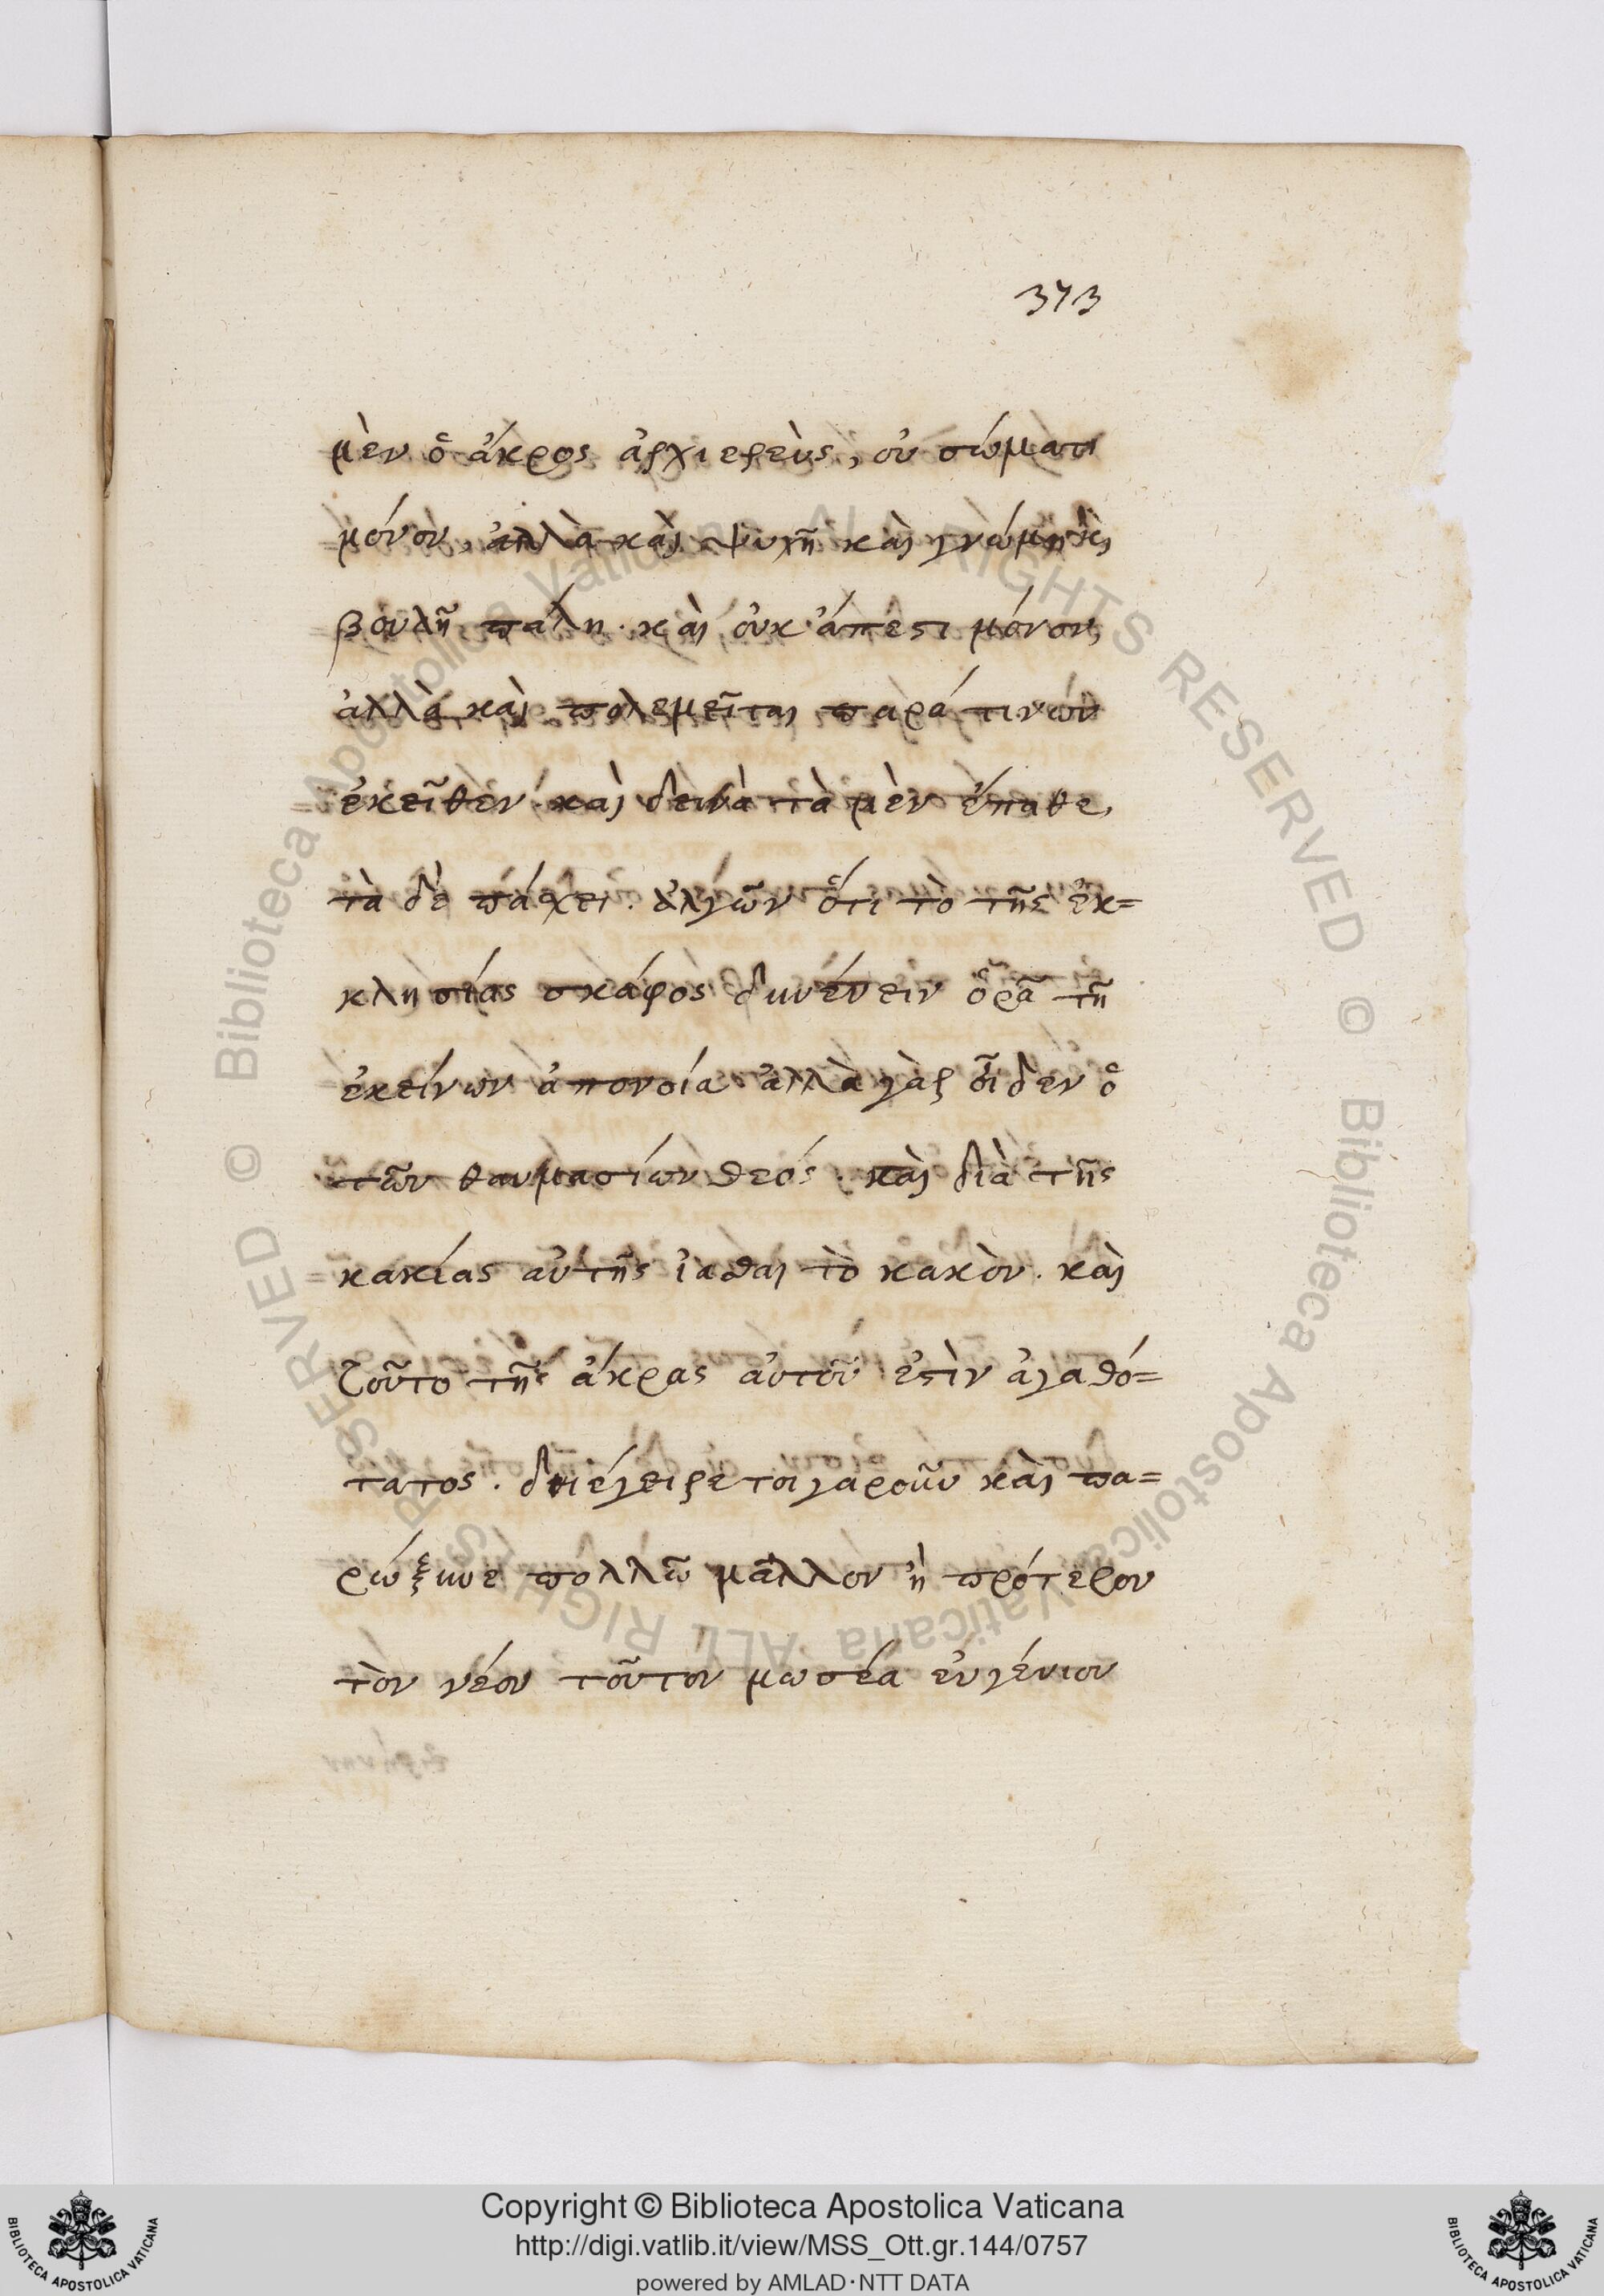 373
μὲν ὁ ἄκρος ἀρχιερεὺς, οὐ σώματι
μόνον, ἀλλὰ καὶ ψυχῇ καὶ γνώμῃ κὶ
βουλῇ πάλη. καὶ οὐκ ἄπεστι μόνον,
ἀλλὰ καὶ πολεμεῖται παρά τινων
ἐκεῖθεν. καὶ δεινὰ τὰ μὲν ἔπαθε,
τὰ δὲ πάσχει. ἀλγῶν ὅτι τὸ τῆς ἐκ=
κλησίας σκάφος ὁρᾷ τῇ
ἐκείνων ἀπονοίᾳ. ἀλλὰ γὰρ οἶδεν ὁ
τῶν θαυμασίων θεός. καὶ διὰ τῆς
κακίας αὐτῆς ἰᾶσθαι τὸ κακὸν. καὶ
τοῦτο τῆς ἄκρας αὐτοῦ ἐστὶν ἀγαθό=
τατος. διήγειρε τοιγαροῦν καὶ πα=
ρώξυνε πολλῷ μᾶλλον ἢ πρότερον
τὸν νέον τοῦτον μωσέα εὐγένιον
Copyright © Biblioteca Apostolica Vaticana
http://digi.vatlib.it/view/MSS_Ott.gr.144/0757
powered by AMLAD·NTT DATA
BIBLIOTECA APOSTOLICA VATICANA
BIBLIOTECA APOSTOLICA VATICANA
© Biblioteca Apostolica Vaticana ALL RIGHTS RESERVED
© Biblioteca Apostolica Vaticana ALL RIGHTS RESERVED